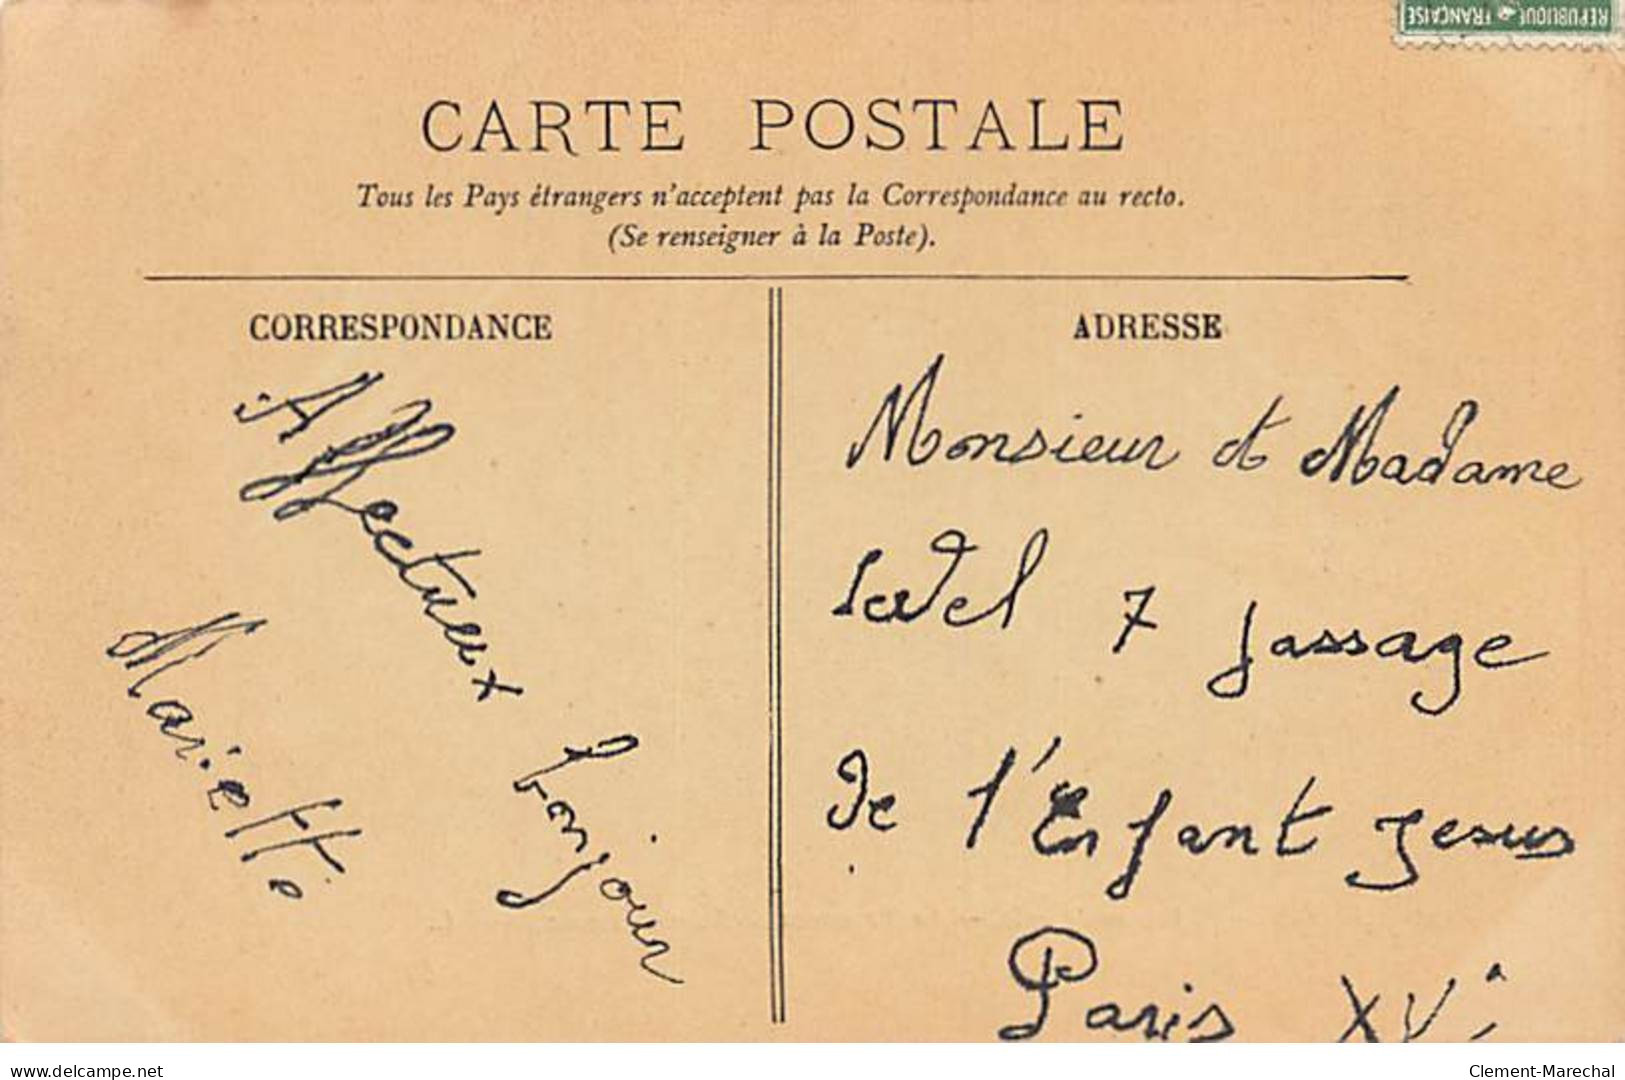 REPUBLIQUE FRANÇAISE
CARTE POSTALE
Tous les Pays étrangers n'acceptent pas la Correspondance au recto.
(Se renseigner à la Poste).
CORRESPONDANCE
Affectueux bonjour
Mariette
ADRESSE
Monsieur et Madame
7 passage
de l'Enfant Jesus
Paris XV
delcampe.net
Clement-Marechal